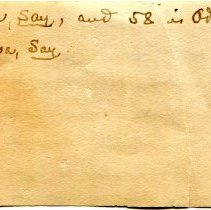 , Say, and 58 is Od
a, Say.